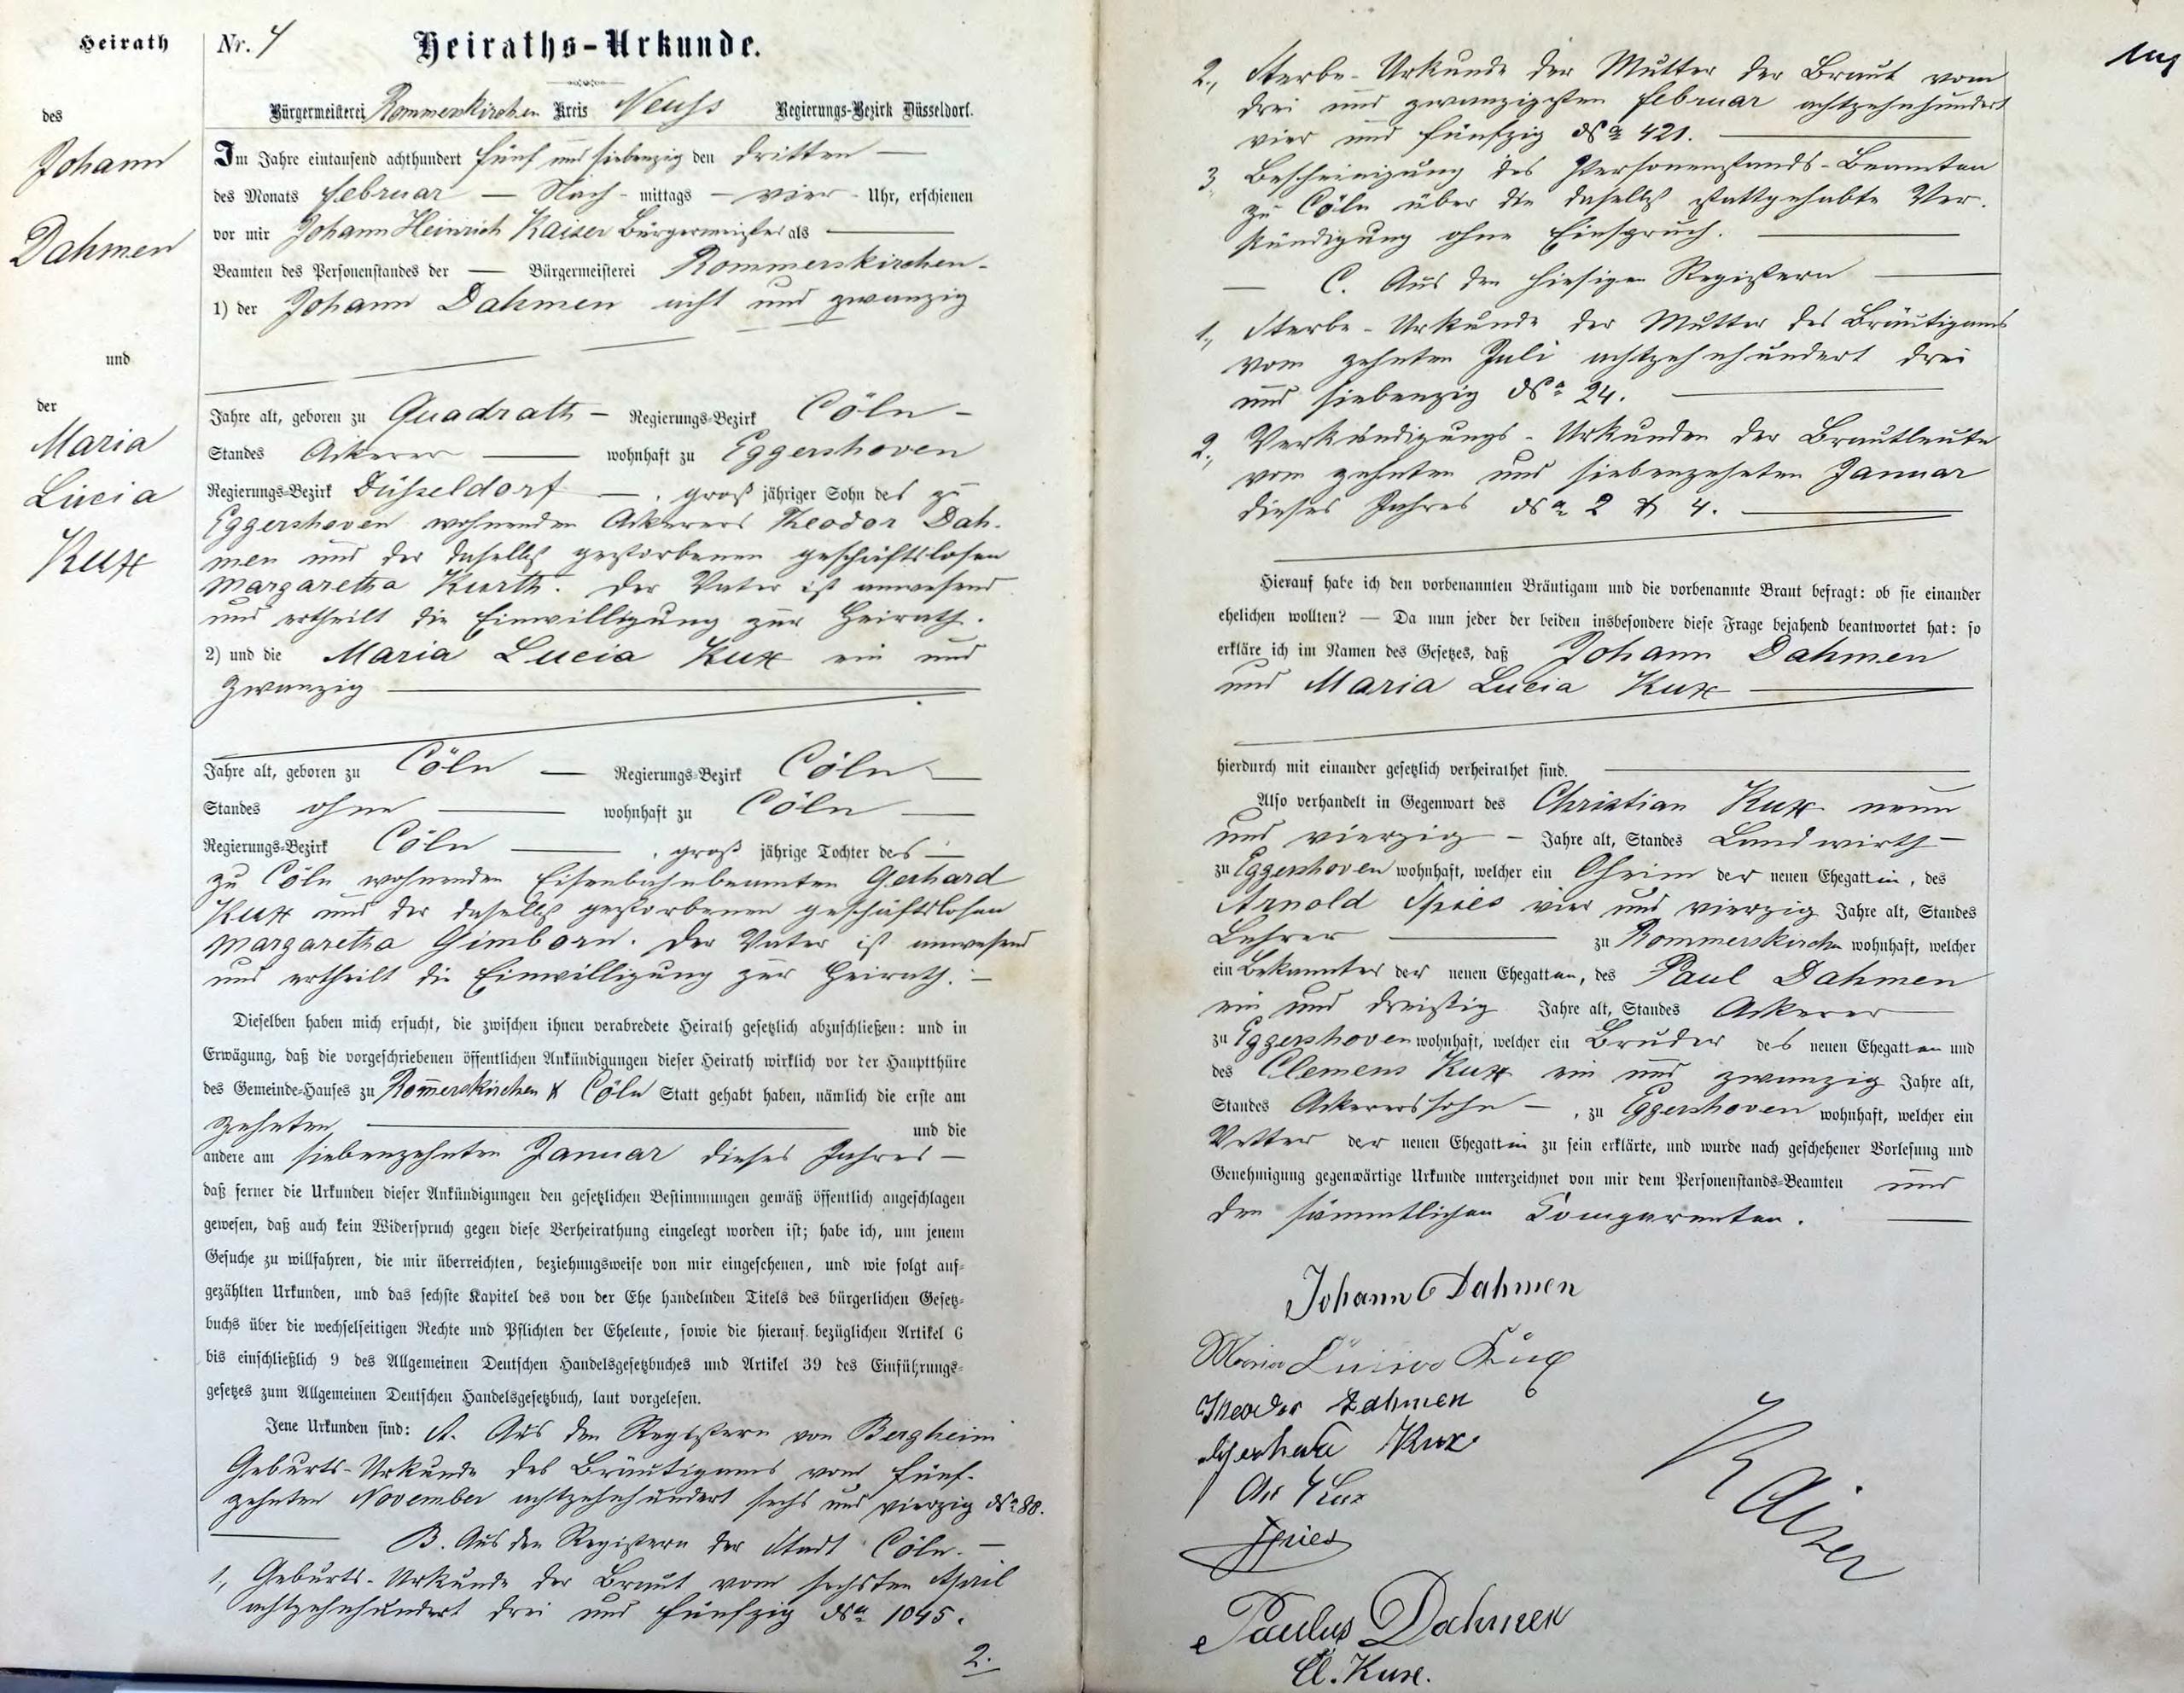 Heirath
des
Johann
Dahmen
und
der
Maria
Lucia
Kux
Nr. 4
Heiraths-Urkunde.
Bürgermeisterei Rommerskirchen Kreis Neuss Regierungs-Bezirk Düsseldorf.
Im Jahre eintausend achthundert fünf und siebenzig den dritten —
des Monats Februar — Nach-mittags — vier - Uhr, erschienen
vor mir Johann Heinrich Kaiser Bürgermeister als —
Beamten des Personenstandes der — Bürgermeisterei Rommerskirchen -
1) der Johann Dahmen acht und zwanzig
Jahre alt, geboren zu Quadrath - Regierungs-Bezirk Cöln -
Standes Ackerer — wohnhaft zu Eggershoven
Regierungs-Bezirk Düsseldorf —, großjähriger Sohn des zu
Eggershoven wohnenden Ackerers Theodor Dah-
men und der daselbst gestorbenen geschäftslosen
Margaretha Kurth. Der Vater ist anwesend
und ertheilt die Einwilligung zur Heirath.
2) und die Maria Lucia Kux ein und
zwanzig —
Jahre alt, geboren zu Cöln — Regierungs-Bezirk Cöln —
Standes ohne — wohnhaft zu Cöln —
Regierungs-Bezirk Cöln —, großjährige Tochter des —
zu Cöln wohnenden Eisenbahnbeamten Gerhard
Kux und der daselbst gestorbenen geschäftslosen
Margaretha Gimborn. Der Vater ist anwesend
und ertheilt die Einwilligung zur Heirath. —
Dieselben haben mich ersucht, die zwischen ihnen verabredete Heirath gesetzlich abzuschließen: und in
Erwägung, daß die vorgeschriebenen öffentlichen Ankündigungen dieser Heirath wirklich vor der Hauptthüre
des Gemeinde-Hauses zu Rom̄erskirchen & Cöln Statt gehabt haben, nämlich die erste am
zehnten — und die
andere am siebenzehnten Januar dieses Jahres —
daß ferner die Urkunden dieser Ankündigungen den gesetzlichen Bestimmungen gemäß öffentlich angeschlagen
gewesen, daß auch kein Widerspruch gegen diese Verheirathung eingelegt worden ist; habe ich, um jenem
Gesuche zu willfahren, die mir überreichten, beziehungsweise von mir eingesehenen, und wie folgt auf-
gezählten Urkunden, und das sechste Kapitel des von der Ehe handelnden Titels des bürgerlichen Gesetz-
buchs über die wechselseitigen Rechte und Pflichten der Eheleute, sowie die hierauf bezüglichen Artikel 6
bis einschließlich 9 des Allgemeinen Deutschen Handelsgesetzbuches und Artikel 39 des Einführungs-
gesetzes zum Allgemeinen Deutschen Handelsgesetzbuch, laut vorgelesen.
Jene Urkunden sind: A. Aus den Registern von Bergheim
Geburts-Urkunde des Bräutigams vom fünf-
zehnten November achtzehnhundert sechs und vierzig No 88.
— B. Aus den Registern der Stadt Cöln. —
1., Geburts-Urkunde der Braut vom sechsten April
achtzehnhundert drei und fünfzig No 1045.
2.
2., Sterbe-Urkunde der Mutter der Braut vom
drei und zwanzigsten Februar achtzehnhundert
vier und fünfzig No 421. —
3, Bescheinigung des Personenstands-Beamten
zu Cöln über die daselbst stattgehabte Ver-
kündigung ohne Einspruch. —
— C. Aus den hiesigen Registern —
1., Sterbe-Urkunde der Mutter des Bräutigams
vom zehnten Juli achtzehnhundert drei
und siebenzig No 24. —
2., Verkündigungs-Urkunden der Brautleute
vom zehnten und siebenzehnten Januar
dieses Jahres No 2 & 4. —
Hierauf habe ich den vorbenannten Bräutigam und die vorbenannte Braut befragt: ob sie einander
ehelichen wollten? — Da nun jeder der beiden insbesondere diese Frage bejahend beantwortet hat: so
erkläre ich im Namen des Gesetzes, daß Johann Dahmen
und Maria Lucia Kux —
hierdurch mit einander gesetzlich verheirathet sind. —
Also verhandelt in Gegenwart des Christian Kux neun
und vierzig — Jahre alt, Standes Landwirth —
zu Eggershoven wohnhaft, welcher ein Oheim der neuen Ehegattin, des
Arnold Spies vier und vierzig Jahre alt, Standes
Lehrer — zu Rommerskirchen wohnhaft, welcher
ein Bekannter der neuen Ehegatten, des Paul Dahmen
ein und dreißig Jahre alt, Standes Ackerer —
zu Eggershoven wohnhaft, welcher ein Bruder des neuen Ehegatten und
des Clemens Kux ein und zwanzig Jahre alt,
Standes Ackererssohn —, zu Eggershoven wohnhaft, welcher ein
Vetter der neuen Ehegattin zu sein erklärte, und wurde nach geschehener Vorlesung und
Genehmigung gegenwärtige Urkunde unterzeichnet von mir dem Personenstands-Beamten und
den sämmtlichen Comparenten. —
Johann Dahmen
Maria Lucia Kux
Theodor Dahmen
Gerhard Kux
Kux
Spies
Kaiser
Paulus Dahmen
Cl. Kux.